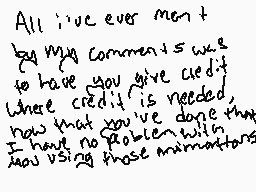 All i've ever ment
by my comments was
to have you give cledit
where credit is needed,
now that you've done that
I have no problem with
you using those animattons